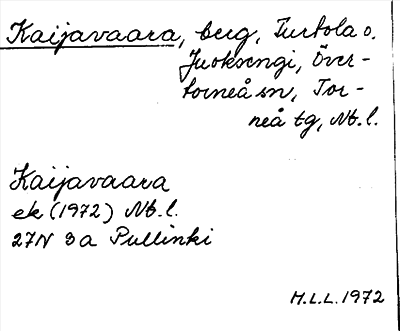 Kaijavaara, berg, Turtola o.
Juoksengi, Över-
torneå sn, Tor-
neå tg, Nb. l.
Kaijavaara
ek (1972) Nb. l.
27N 3a Pullinki
H.L.L. 1972